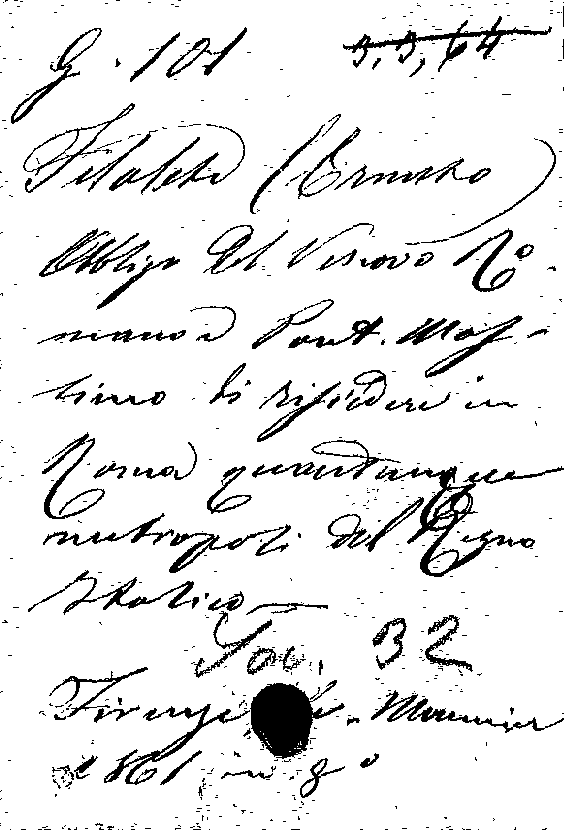 G. 101 3, 3, 64
Filalete (Ernesto)
Obbligo del Vescovo Ro-
mano e Pont. Mas-
simo di risiedere in
Roma quantunque
metropoli del Regno
Italico
Tov. 32
Firenze Le Monnier
1861 in 8°